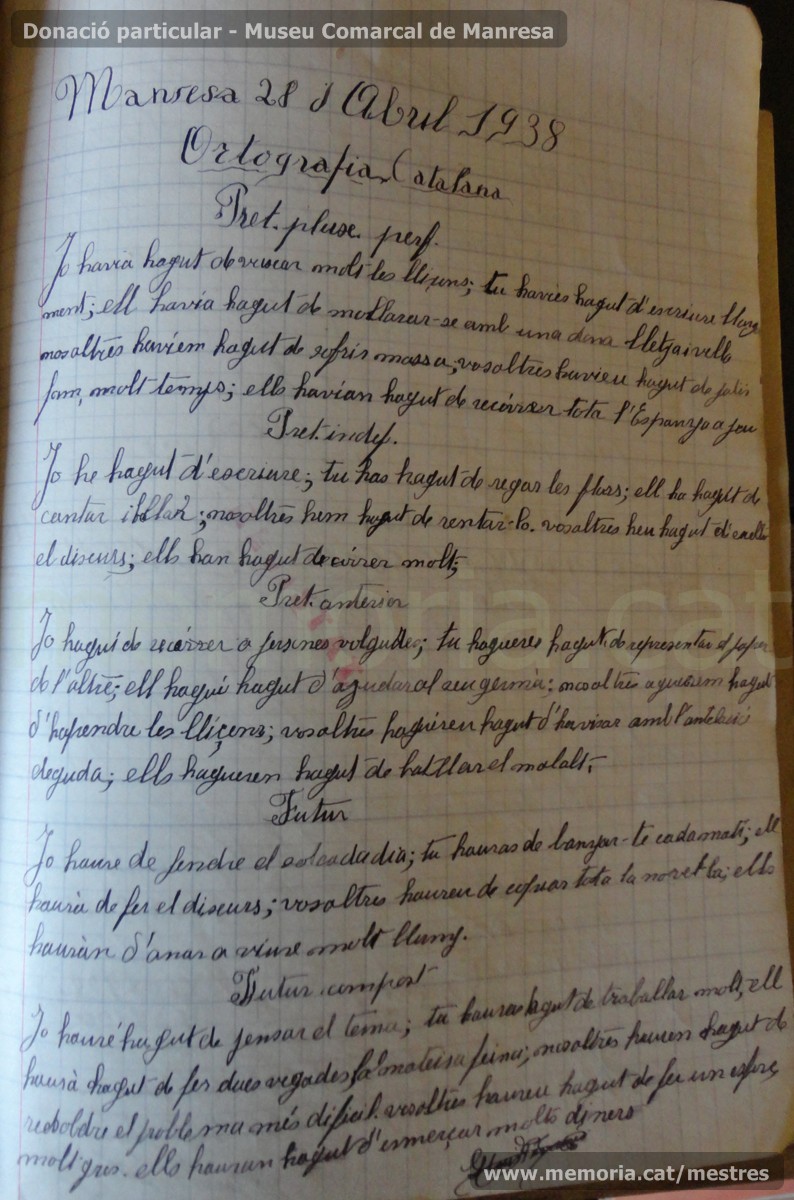 Donació particular - Museu Comarcal de Manresa
Manresa 28 d Abril 1938
Ortografia Catalana
Pret. plusc. perf.
Jo havia hagut de molt les lliçons; tu havies hagut d'escriure llarg
ment; ell havia hagut de amb una dona lletja i vella
nosaltres havíem hagut de sofrir massa; vosaltres havieu hagut de
fam, molt temps; ells havían hagut de recórrer tota l'Espanya a peu
Pret. indef.
Jo he hagut d'escriure; tu has hagut de regar les flors; ell ha hagut de
cantar i ; nosaltres hem hagut de rentar-lo. vosaltres heu hagut
el discurs; ells han hagut de córrer molt;
Pret. anterior
Jo haguí de recórrer a persones volgudes; tu hagueres hagut de representar el paper
de l'altre; ell hagué hagut d'ajudar al seu germà; nosaltres aguerem hagut
d'haprendre les lliçons; vosaltres haguéreu hagut d'havisar amb l'antelació
deguda; ells hagueren hagut de batllar el malalt.
Futur
Jo haure de pendre el sol cada dia; tu hauras de banyar-te cada matí; ell
haurà de fer el discurs; vosaltres haureu de tota la ells
hauràn d'anar a viure molt lluny.
Futur compost
Jo hauré hagut de pensar el tema; tu hauras hagut de traballar molt, ell
haurà hagut de fer dues vegades la mateixa feina; nosaltres haurem hagut de
resoldre el problema més dificil. vosaltres haureu hagut de fer un esforç
molt gros. ells hauran hagut d'esmerçar molts diners
www.memoria.cat/mestres